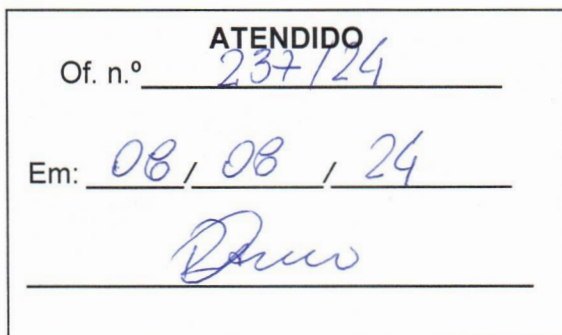 ATENDIDO
Of. n.º 237/24
Em: 08/08/24